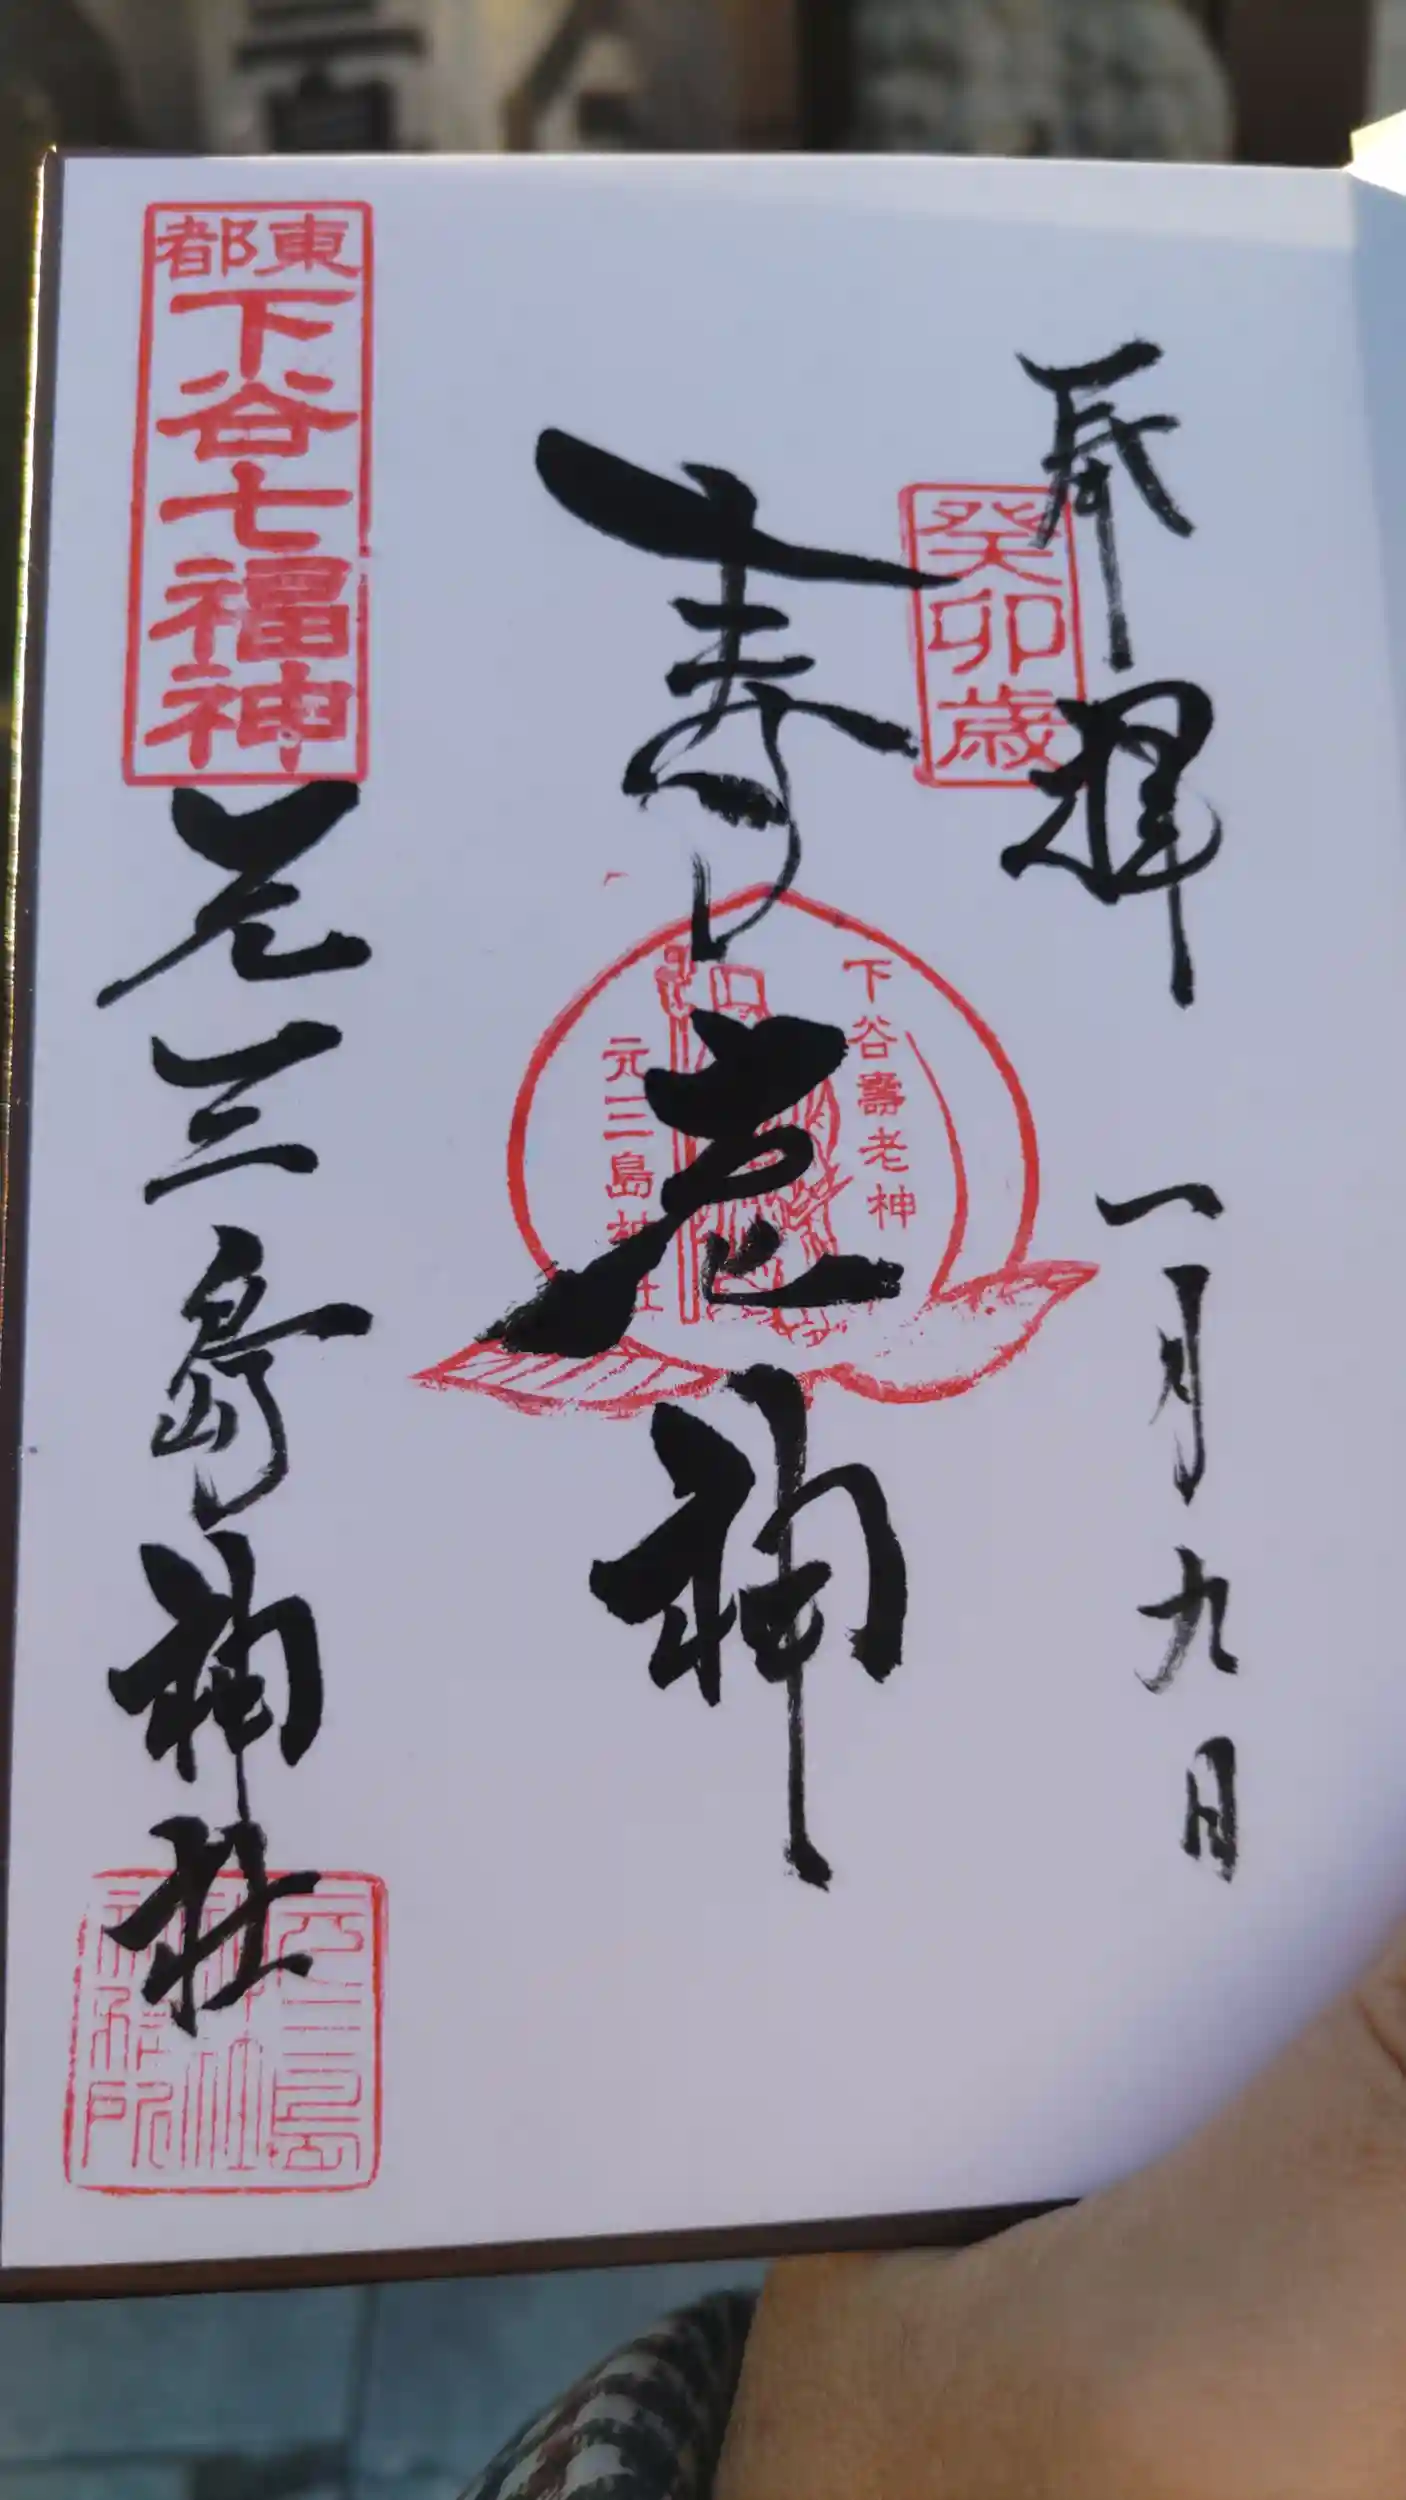 奉拝
一月九日
癸卯歳
寿老神
下谷壽老神
元三島神社
東都
下谷七福神
元三島神社
元三島
神社